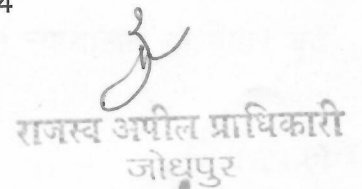 4
राजस्व अपील प्राधिकारी
जोधपुर